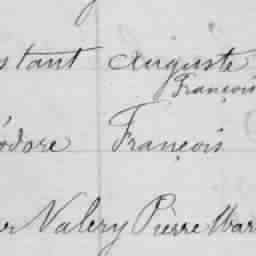 stant Auguste
François
odore François
er Valery Pierre Mar